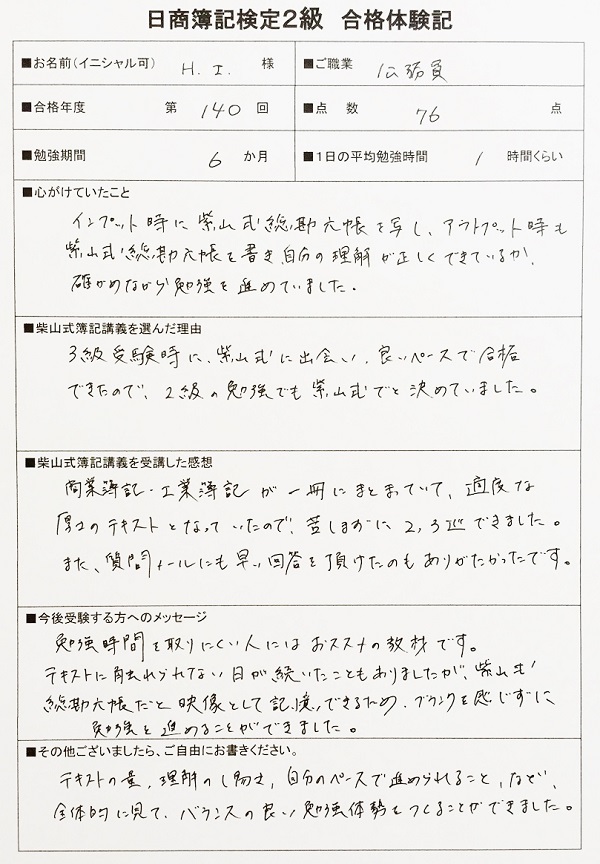 日商簿記検定2級 合格体験記
■お名前(イニシャル可) H.I. 様 ■ご職業 公務員
■合格年度 第 140 回 ■点数 76 点
■勉強期間 6 か月 ■1日の平均勉強時間 1 時間くらい
■心がけていたこと
インプット時に柴山式総勘定元帳を写し、アウトプット時も
柴山式総勘定元帳を書き、自分の理解が正しくできているか、
確かめながら勉強を進めていました。
■柴山式簿記講義を選んだ理由
3級受験時に、柴山式に出会い、良いペースで合格
できたので、2級の勉強でも柴山式でと決めていました。
■柴山式簿記講義を受講した感想
商業簿記・工業簿記が一冊にまとまっていて、適度な
厚さのテキストとなっていたので、苦しまずに2,3巡できました。
また、質問メールにも早い回答を頂けたのもありがたかったです。
■今後受験する方へのメッセージ
勉強時間を取りにくい人にはおススメの教材です。
テキストに触れられない日が続いたこともありましたが、柴山式
総勘定元帳だと映像として記憶できるため、ブランクを感じずに
勉強を進めることができました。
■その他ございましたら、ご自由にお書きください。
テキストの量、理解のし易さ、自分のペースで進められること、など、
全体的に見て、バランスの良い勉強体勢をつくることができました。